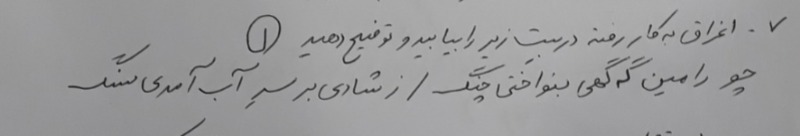 ۷. اغراق به کار رفته در بیت زیر را بیابید و توضیح دهید ۱
چو رامین گه گهی بنواختی چنگ / ز شادی بر سر آب آمدی سنگ